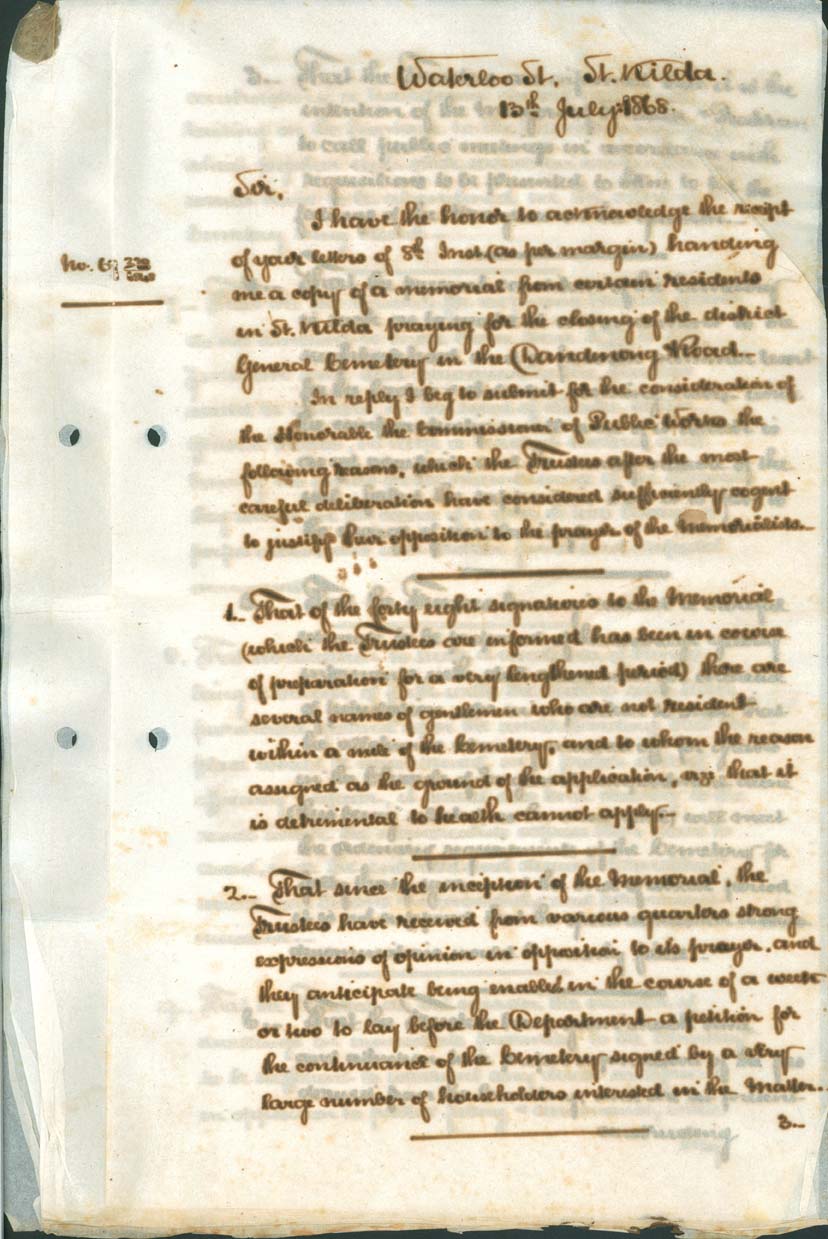 Waterloo St. St. Kilda.
13th July 1868.
Sir,
I have the honor to acknowledge the receipt
of your letters of 8th Inst. (as per margin) handing
No. 68
me a copy of a memorial from certain residents
in St. Kilda praying for the closing of the district
General Cemetery in the Dandenong Road.
In reply I beg to submit for the consideration of
the Honorable the Commissioner of Public Works the
following reasons, which the Trustees after the most
careful deliberation have considered sufficiently cogent
to justify their opposition to the prayer of the Memorialists.
1. That of the forty eight signatories to the Memorial
(which the Trustees are informed has been in course
of preparation for a very lengthened period) there are
several names of gentlemen who are not resident
within a mile of the Cemetery, and to whom the reason
assigned as the ground of the application, viz that it
is detrimental to health cannot apply.
2. That since the inception of the Memorial, the
Trustees have received from various quarters strong
expressions of opinion in opposition to its prayer, and
they anticipate being enabled in the course of a week
or two to lay before the Department a petition for
the continuance of the Cemetery signed by a very
large number of householders interested in the Matter.
3.